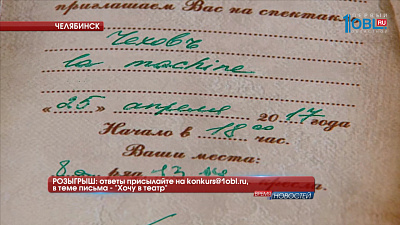 ЧЕЛЯБИНСК
ПЕРВЫЙ
1OBL.RU
приглашаем Вас на спектакль
Чеховъ
la machine
«25» апреля 2017 года
Начало в 18 00 час.
Ваши места:
ряд 13
кресла.
РОЗЫГРЫШ: ответы присылайте на konkurs@1obl.ru,
в теме письма - "Хочу в театр"
ВРЕМЯ
НОВОСТЕЙ